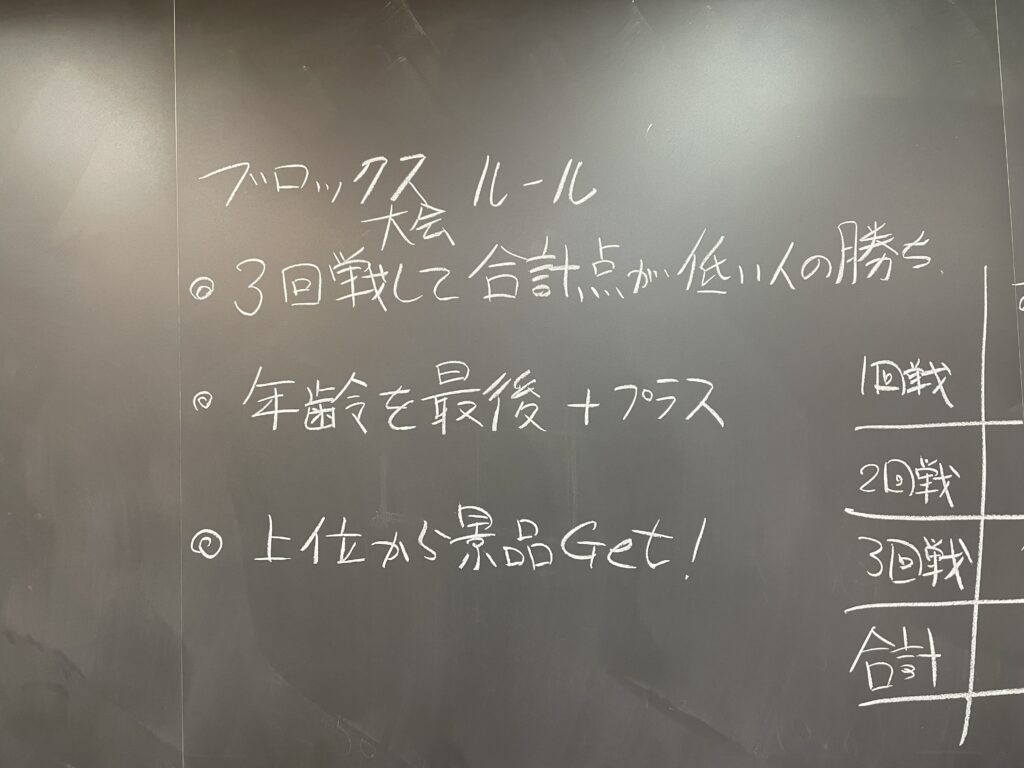 ブロックス ルール
大会
◎3回戦して合計点が低い人の勝ち
◎年齢を最後+プラス
◎上位から景品Get!
1回戦
2回戦
3回戦
合計